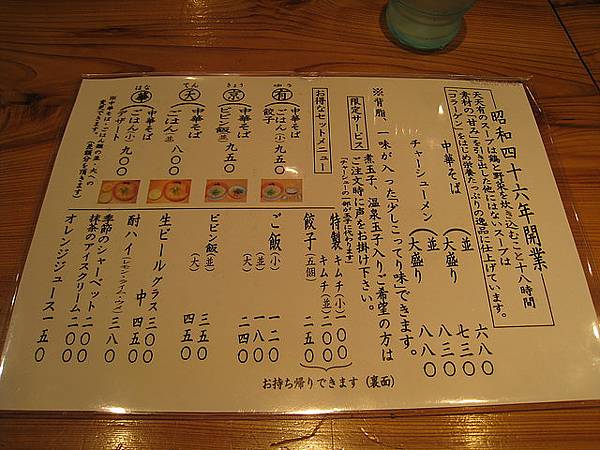 昭和四十六年開業
天天有のスープは鶏と野菜を炊き込むこと十八時間
素材の「甘み」を引き出した他にはないスープは
「コラーゲン」をはじめ栄養たっぷりの逸品に仕上げています。
中華そば (並) 六八〇
(大盛り) 七三〇
チャーシューメン (並) 八三〇
(大盛り) 八八〇
※背脂、一味が入った「少しこってり味」できます。
限定サービス
煮玉子、温泉玉子入りご希望の方は
ご注文時に声をお掛け下さい。
「チャーシューの一部が玉子に代わります」
お得なセットメニュー
ゆう
有 中華そば
ごはん(小) 九五〇
餃子
きょう
京 中華そば
ビビン飯(並) 九五〇
てん
天 中華そば
ごはん(並) 八〇〇
はな
華 中華そば
ごはん(小) 九〇〇
デザート
※中華そば・ごはん類の並→大への
変更できます。(差額分を頂きます)
特製キムチ(小) 一〇〇
キムチ(並) 二〇〇
餃子(五個) 二五〇
ご飯(小) 一二〇
(並) 一八〇
(大) 二四〇
ビビン飯(並) 三五〇
(大) 四五〇
生ビール グラス 三〇〇
中 四五〇
酎ハイ(レモン・ライム・ウメ) 三八〇
季節のシャーベット 二〇〇
抹茶のアイスクリーム 二〇〇
オレンジジュース 一五〇
お持ち帰りできます(裏面)